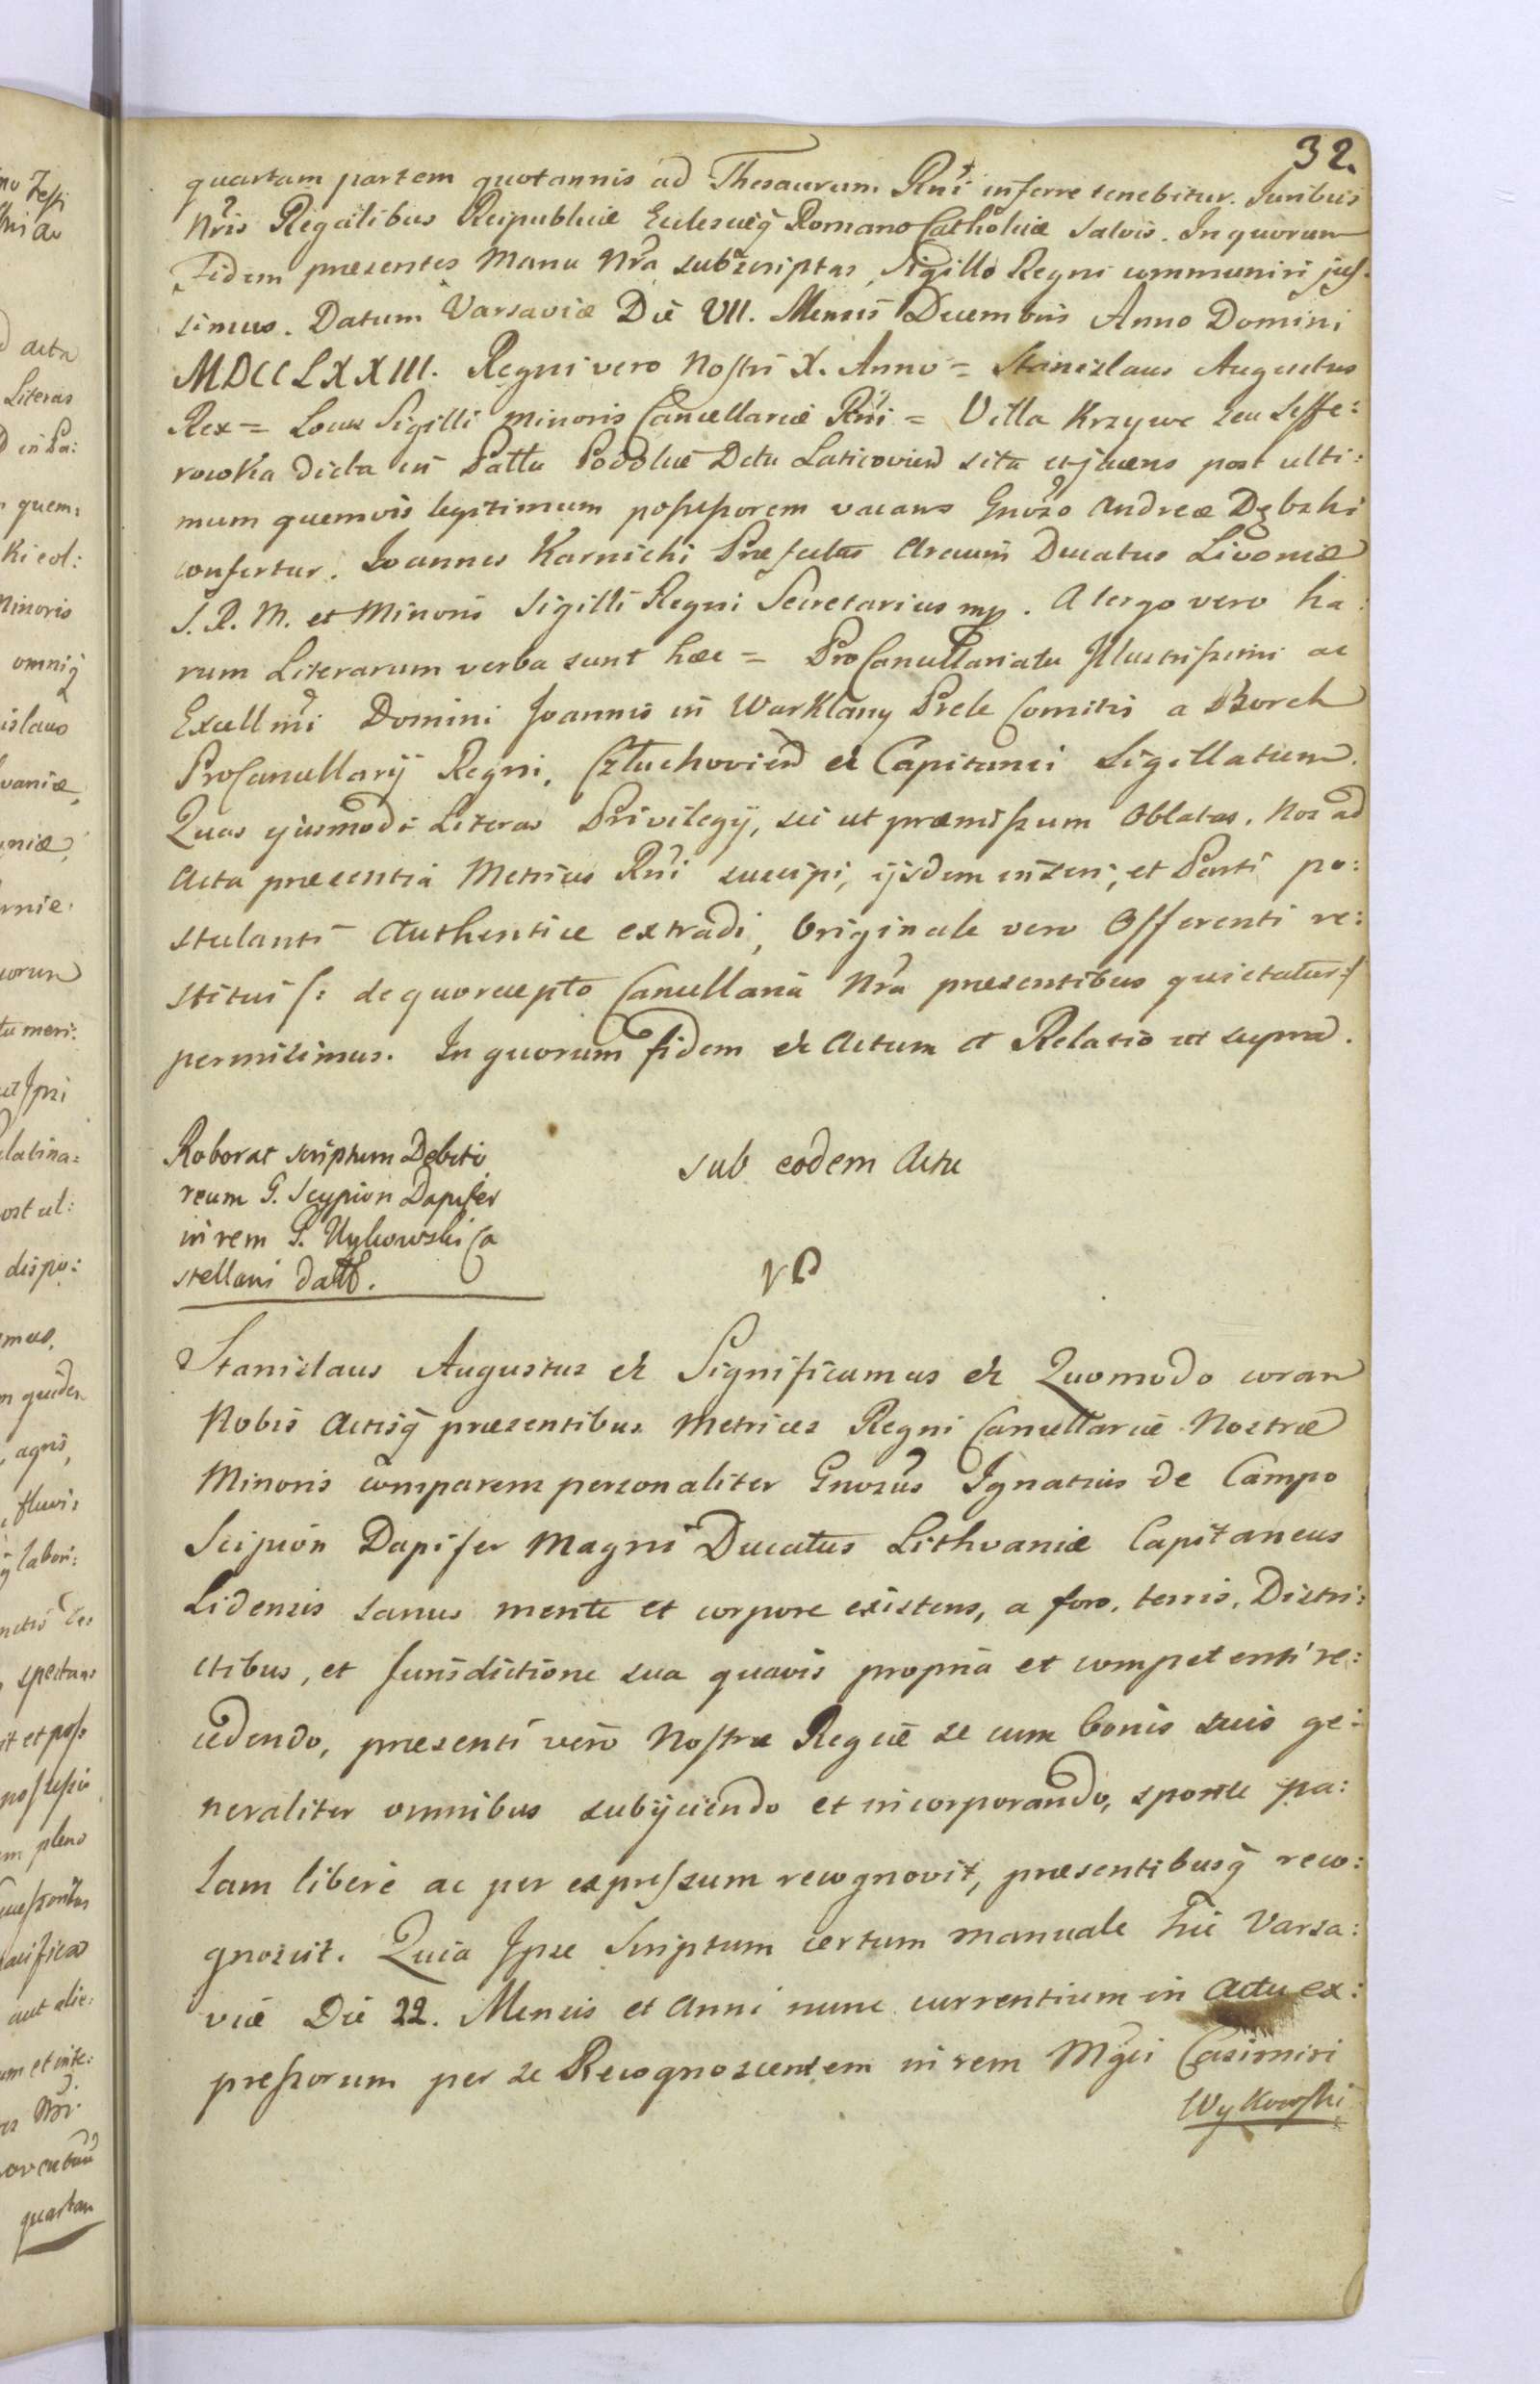 32.
quartam partem quotannis ad Thesaurum Rni inferre tenebitur. Juribus
Nris Regalibus Reipublicæ Eclesiæq Romano Catholicæ salvis. In quorum
Fidem præsentes Manu Nra subscriptas, Sigillo Regni communiri jus-
simus. Datum Varsaviæ Die VII. Mensis Decembris Anno Domini
MDCCLXXIII. Regni vero Nostri X. Anno = Stanislaus Augustus
Rex = Locus Sigilli minoris Cancellariæ Rni = Villa Krzywe seu Seffe:
rowka dicta in Pallu Podoliæ Dctu Laticovien sita et jacens post ulti:
mum quemvis legitimum possessorem vacans Gnoso Andreæ Dębski
confertur. Joannes Karnicki Præfectus Arcium Ducatus Livoniæ
S. R. M. et Minoris Sigilli Regni Secretarius mp. A tergo vero ha:
rum Literarum verba sunt hæc = ProCancellariatu Illustrissimi ac
Excellmi Domini Joannis in Warklany Prele Comitis a Borch
ProCancellarij Regni, Człuchovien et Capitanei Sigillatum.
Quas ejusmodi Literas Privilegij, sic ut præmissum Oblatas. Nos ad
Acta præsentia Metrices Rni suscipi, ijsdem inseri, et Parti po:
stulanti Authentice extradi, Originale vero Offerenti re:
stitui /: de quo recepto Cancellaria Nra præsentibus quietatur :/
permisimus. In quorum fidem et Actum et Relatio ut supra.
Roborat scriptum Debiti
reum G. Scypion Dapifer
in rem G. Wykowski Ca
stellani datt.
sub eodem Actu
Stanislaus Augustus et Significamus et Quomodo coram
Nobis Actisq præsentibus Metrices Regni Cancellariæ Nostræ
Minoris comparens personaliter Gnosus Ignatius de Campo
Scipion Dapifer Magni Ducatus Lithvaniæ Capitaneus
Lidensis sanus mente et corpore existens, a foro, terris, Distri:
ctibus, et Jurisdictione sua quavis propria et competenti re:
cedendo, præsenti vero Nostræ Regiæ se cum bonis suis ge:
neraliter omnibus subijciendo et incorporando, sponte pa:
lam libere ac per expressum recognovit, præsentibusq reco:
gnoscit. Quia Ipse Scriptum certum manuale hic Varsa:
viæ Die 22. Mensis et Anni nunc currentium in Actu ex:
pressorum per se Recognoscentem in rem Mgci Casimiri
Wykowski